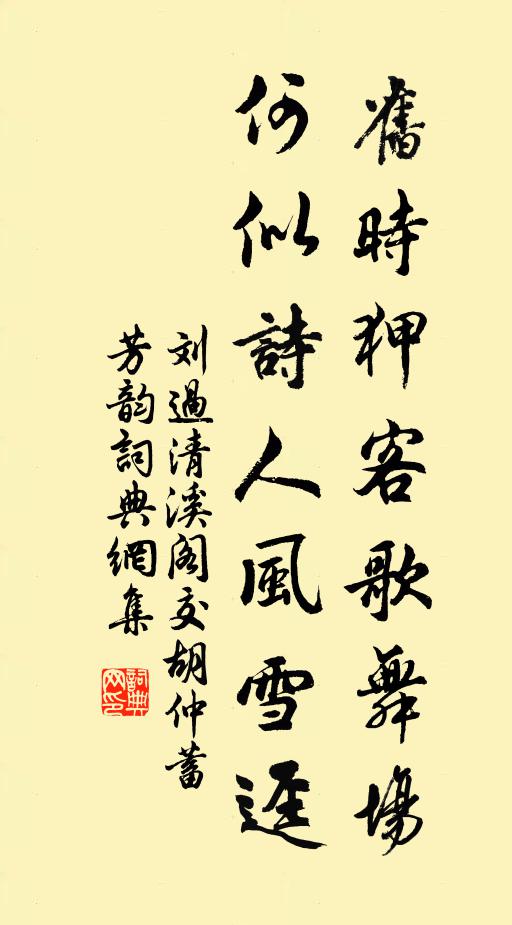 舊時狎客歌舞場
何似詩人風雪逕
刘過清溪阁交胡仲蓄
芳韵詞典網集
詞典
网印